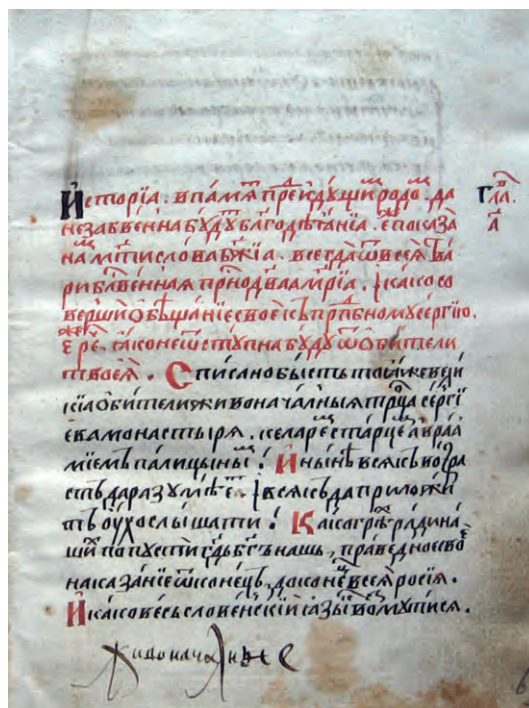 Исторїа. впамѧ́ⷮ преидꙋ́щиⷨ родоⷨ. да Глаⷡ҇.
незабве́нна бꙋ́дꙋⷮ бл҃годѣѧ́нїа. єⷤ показа̀ а҃
на́мⷨ мт҃и слова бж҃їа. всегда̀ ѿ всеѧ̀ тва́
ри блгⷭ҇ве́ннаа прⷭ҇нодв҃а мр҃і́а. и́како со
вершѝ ѻ҆бѣща́нїе своѐ къ прпⷣбномꙋ се́ргїю.
є́же речѐ. ꙗ́ко неѿстꙋ́пна бꙋ́дꙋ ѿ ѻ҆би́тели
твоеѧ̀. Списано бы́сть тоѧ́же вели́
кїа ѻ҆би́тели живонача́лныѧ трⷪ҇ца се́ргї
ева монасты́рѧ. келаре́ⷨ ста́рцеⷨ авраа́
мїемъ па́лицыныⷨ. И ны́нѣ всѧ́къ во́зра
стъ да разꙋмѣ́еⷮ. и всѧ́къ да приложи́
тъ ѹ҆́хо слы́шати. Ка́ко грѣ́хⷯ ра́ди на́
шиⷯ попꙋстѝ гд҇ь бг҃ъ нашъ, пра́ведное своѐ
наказа́нїе ѿ коне́цъ, до коне́цъ всеѧ̀ росі́ѧ.
И ка́ко ве́сь слове́нский ꙗзы́къ возмꙋти́сѧ.